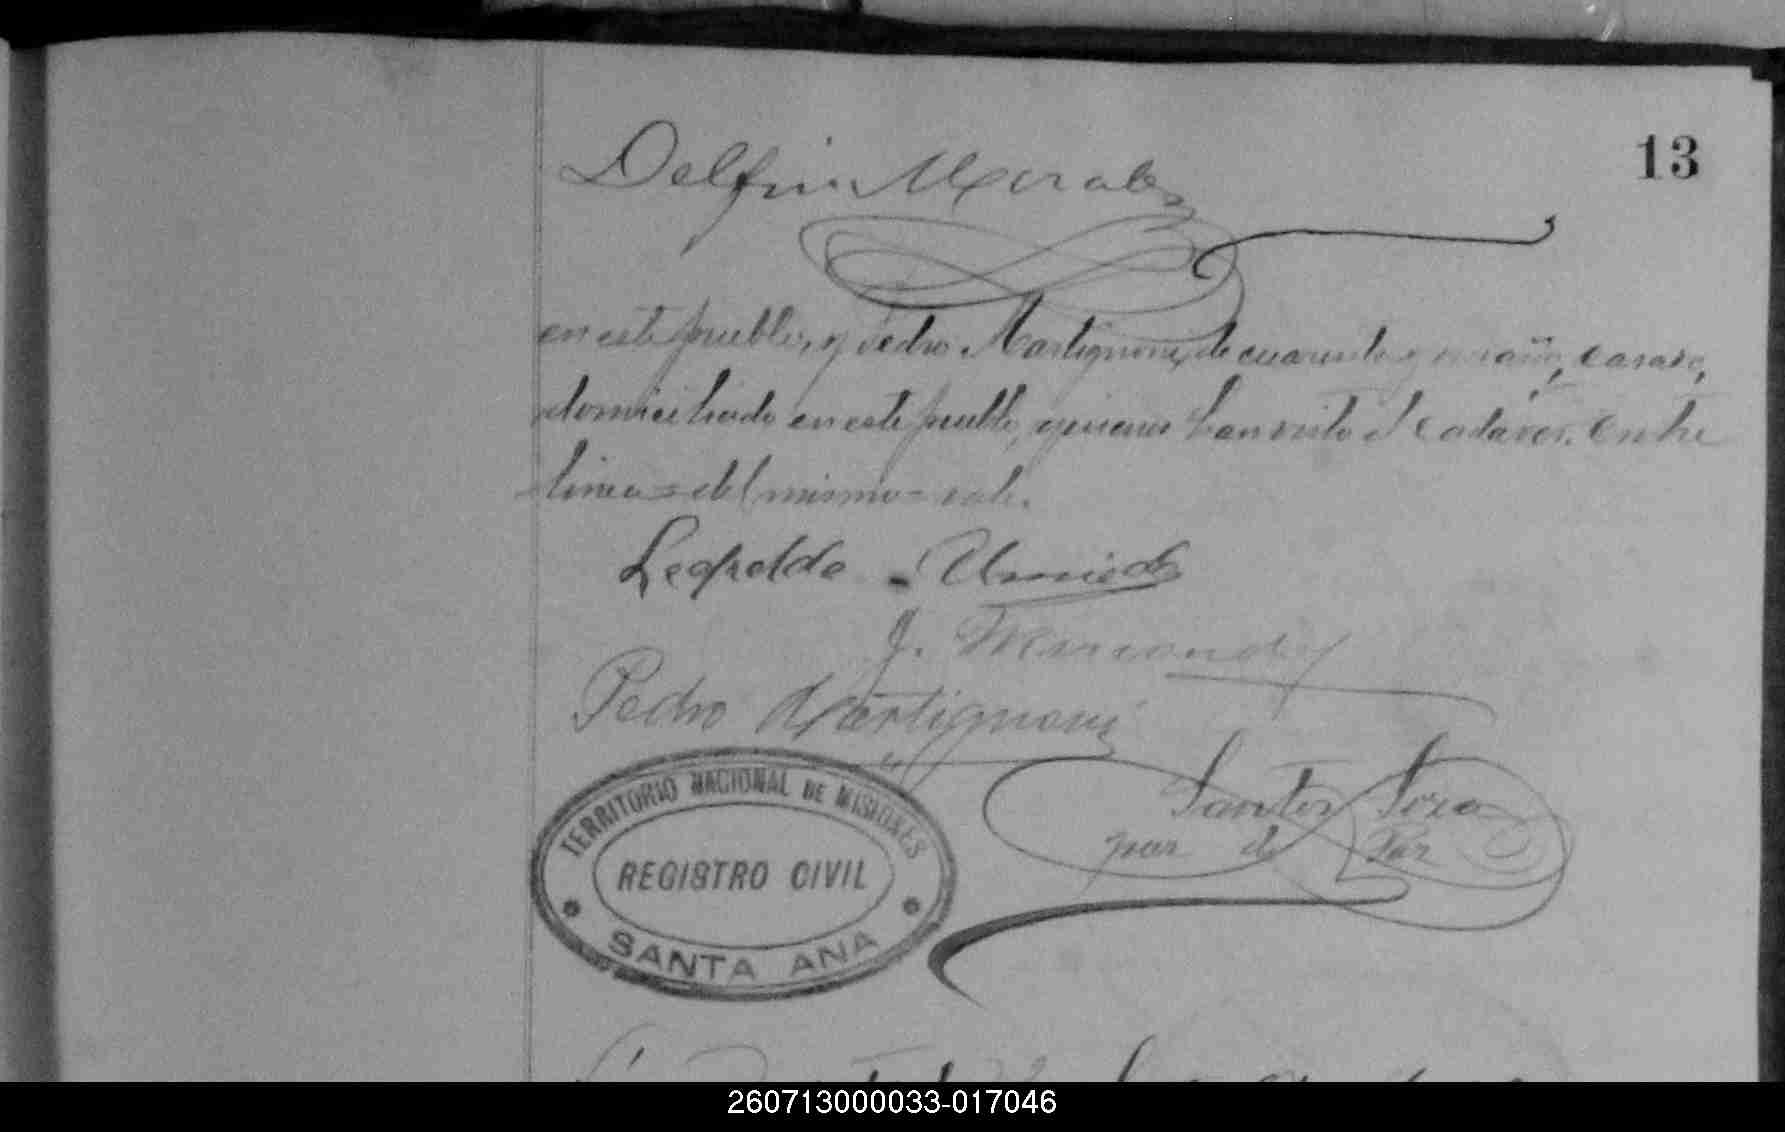 13
Delfin Morales
en este pueblo, y Pedro Martignoni, de cuarenta y un años, casado,
domiciliado en este pueblo, quienes han visto el cadáver. Entre
linea = del mismo = vale.
Leopoldo
J. Fernandez
Pedro Martignoni
Santos Soza
Juez de Paz
TERRITORIO NACIONAL DE MISIONES
REGISTRO CIVIL
SANTA ANA
260713000033-017046